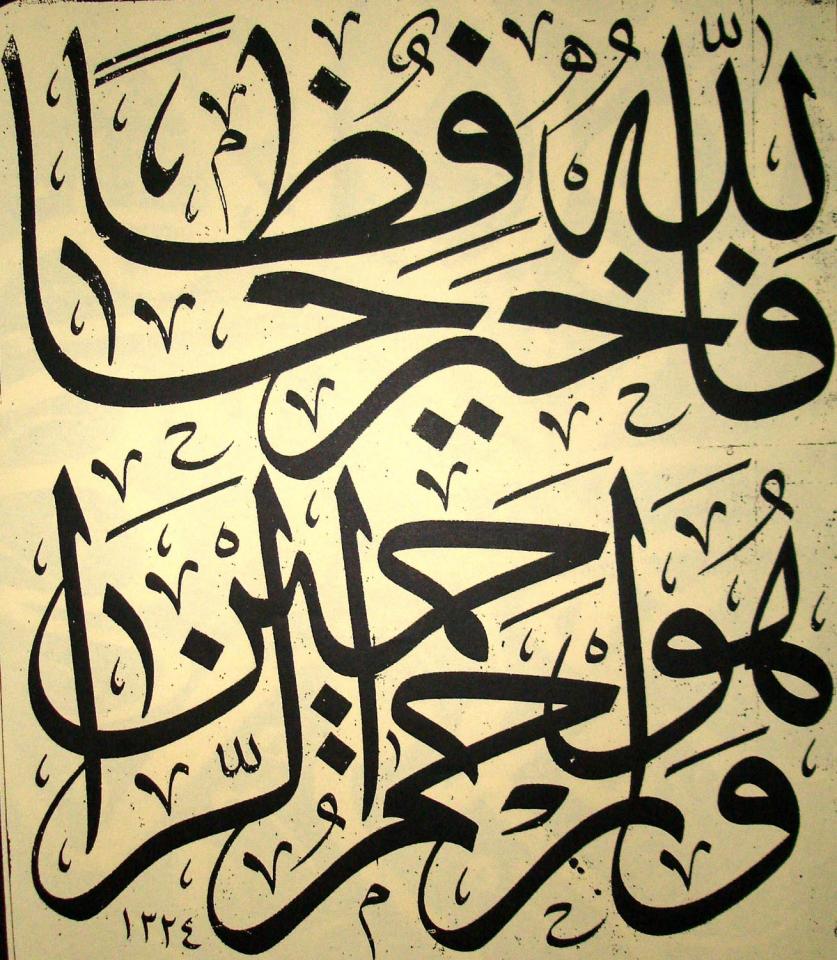 فَاللّٰهُ خَيْرٌ حَافِظًا
وَهُوَ اَرْحَمُ الرَّاحِمِينَ
١٣٢٤